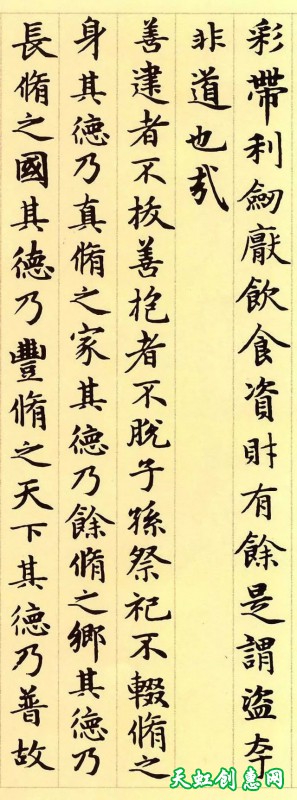 彩帶利劒厭飲食資財有餘是謂盜夸
非道也哉
善建者不拔善抱者不脫子孫祭祀不輟脩之
身其德乃真脩之家其德乃餘脩之鄉其德乃
長脩之國其德乃豐脩之天下其德乃普故
天虹创惠网